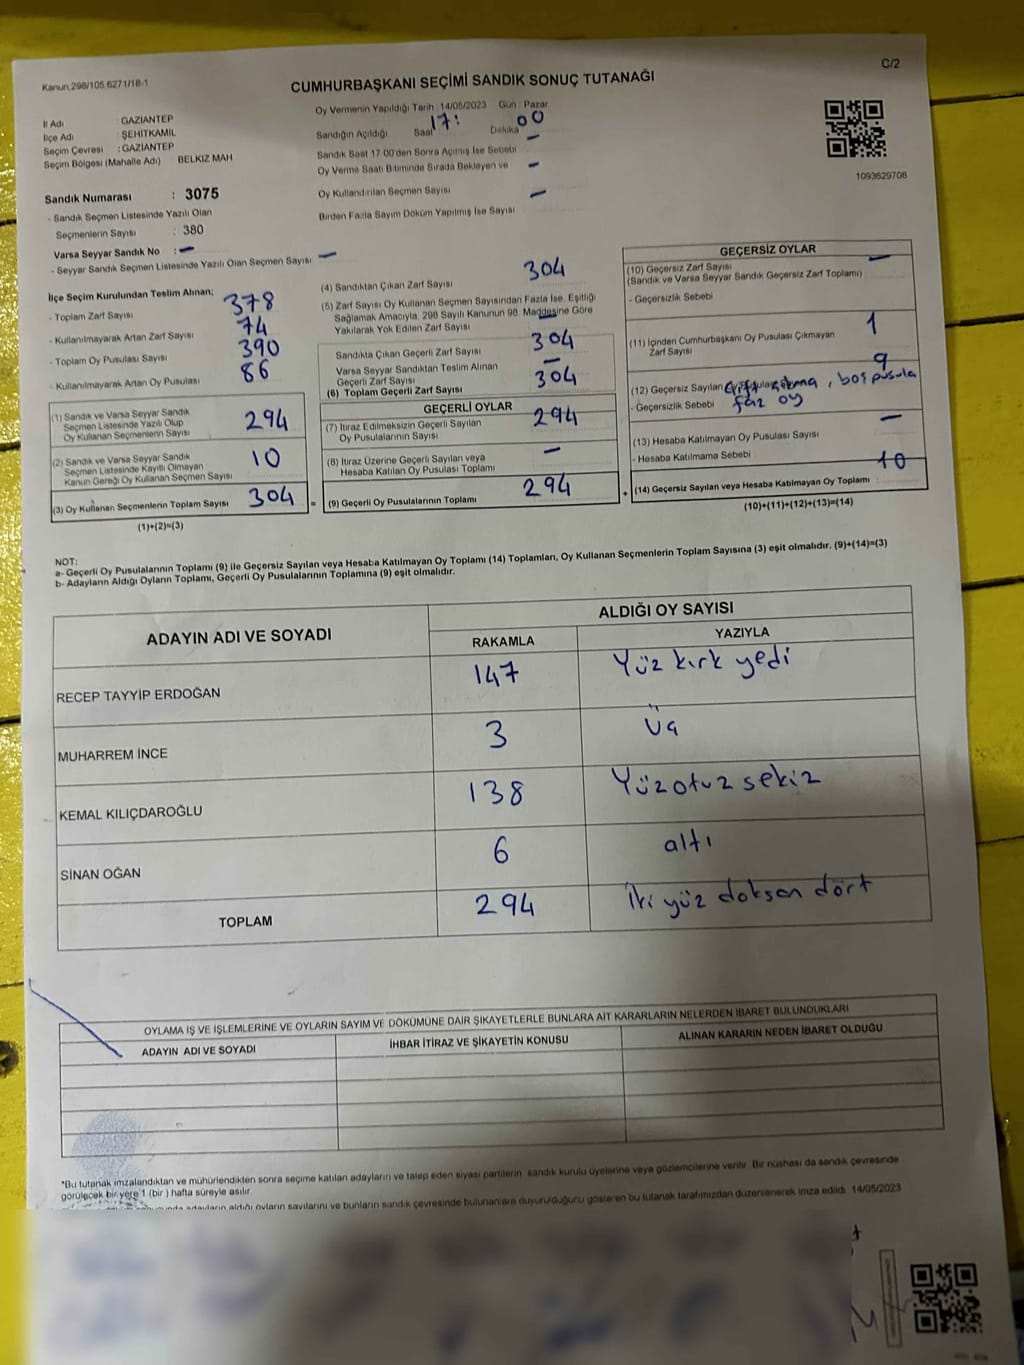 Kanun;298/105 6271/18-1
C/2
CUMHURBAŞKANI SEÇİMİ SANDIK SONUÇ TUTANAĞI
İl Adı : GAZIANTEP
İlçe Adı : ŞEHİTKAMİL
Seçim Çevresi : GAZIANTEP
Seçim Bölgesi (Mahalle Adı) BELKIZ MAH
Sandık Numarası : 3075
- Sandık Seçmen Listesinde Yazılı Olan
Seçmenlerin Sayısı : 380
Varsa Seyyar Sandık No : –
- Seyyar Sandık Seçmen Listesinde Yazılı Olan Seçmen Sayısı –
Oy Vermenin Yapıldığı Tarih :14/05/2023 Gün : Pazar
Sandığın Açıldığı Saat 17: Dakika 00
Sandık Saat 17.00'den Sonra Açılmış İse Sebebi –
Oy Verme Saati Bitiminde Sırada Bekleyen ve –
Oy Kullandırılan Seçmen Sayısı –
Birden Fazla Sayım Döküm Yapılmış İse Sayısı
1093629708
İlçe Seçim Kurulundan Teslim Alınan;
- Toplam Zarf Sayısı 378
- Kullanılmayarak Artan Zarf Sayısı 74
- Toplam Oy Pusulası Sayısı 390
- Kullanılmayarak Artan Oy Pusulası 86
(1) Sandık ve Varsa Seyyar Sandık
Seçmen Listesinde Yazılı Olup
Oy Kullanan Seçmenlerin Sayısı 294
(2) Sandık ve Varsa Seyyar Sandık
Seçmen Listesinde Kayıtlı Olmayan
Kanun Gereği Oy Kullanan Seçmen Sayısı 10
(3) Oy Kullanan Seçmenlerin Toplam Sayısı 304 =
(1)+(2)=(3)
(4) Sandıktan Çıkan Zarf Sayısı 304
(5) Zarf Sayısı Oy Kullanan Seçmen Sayısından Fazla İse, Eşitliği
Sağlamak Amacıyla, 298 Sayılı Kanunun 98. Maddesine Göre
Yakılarak Yok Edilen Zarf Sayısı –
Sandıkta Çıkan Geçerli Zarf Sayısı 304
Varsa Seyyar Sandıktan Teslim Alınan
Geçerli Zarf Sayısı –
(6) Toplam Geçerli Zarf Sayısı 304
GEÇERLİ OYLAR
(7) İtiraz Edilmeksizin Geçerli Sayılan
Oy Pusulalarının Sayısı 294
(8) İtiraz Üzerine Geçerli Sayılan veya
Hesaba Katılan Oy Pusulası Toplamı –
(9) Geçerli Oy Pusulalarının Toplamı 294 +
GEÇERSİZ OYLAR
(10) Geçersiz Zarf Sayısı –
(Sandık ve Varsa Seyyar Sandık Geçersiz Zarf Toplamı)
- Geçersizlik Sebebi
(11) İçinden Cumhurbaşkanı Oy Pusulası Çıkmayan
Zarf Sayısı 1
(12) Geçersiz Sayılan 9
- Geçersizlik Sebebi , boş pusula
oy
(13) Hesaba Katılmayan Oy Pusulası Sayısı –
- Hesaba Katılmama Sebebi
(14) Geçersiz Sayılan veya Hesaba Katılmayan Oy Toplamı : 10
(10)+(11)+(12)+(13)=(14)
NOT:
a- Geçerli Oy Pusulalarının Toplamı (9) ile Geçersiz Sayılan veya Hesaba Katılmayan Oy Toplamı (14) Toplamları, Oy Kullanan Seçmenlerin Toplam Sayısına (3) eşit olmalıdır. (9)+(14)=(3)
b- Adayların Aldığı Oyların Toplamı, Geçerli Oy Pusulalarının Toplamına (9) eşit olmalıdır.
ADAYIN ADI VE SOYADI ALDIĞI OY SAYISI
RAKAMLA YAZIYLA
RECEP TAYYİP ERDOĞAN 147 Yüz kırk yedi
MUHARREM İNCE 3 Üç
KEMAL KILIÇDAROĞLU 138 Yüz otuz sekiz
SİNAN OĞAN 6 altı
TOPLAM 294 İki yüz doksan dört
OYLAMA İŞ VE İŞLEMLERİNE VE OYLARIN SAYIM VE DÖKÜMÜNE DAİR ŞİKAYETLERLE BUNLARA AİT KARARLARIN NELERDEN İBARET BULUNDUKLARI
ADAYIN ADI VE SOYADI İHBAR İTİRAZ VE ŞİKAYETİN KONUSU ALINAN KARARIN NEDEN İBARET OLDUĞU
*Bu tutanak imzalandıktan ve mühürlendikten sonra seçime katılan adayların ve talep eden siyasi partilerin sandık kurulu üyelerine veya gözlemcilerine verilir. Bir nüshası da sandık çevresinde
görülecek bir yere 1 (bir ) hafta süreyle asılır.
adayların aldığı oyların sayılarını ve bunların sandık çevresinde bulunanlara duyurulduğunu gösteren bu tutanak tarafımızdan düzenlenerek imza edildi. 14/05/2023